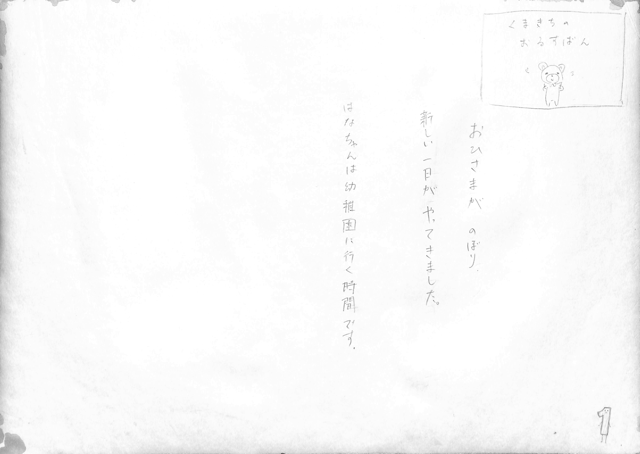 くまきちの
おるすばん
おひさまが のぼり、
新しい一日が やってきました。
はなちゃんは幼稚園に行く時間です。
1